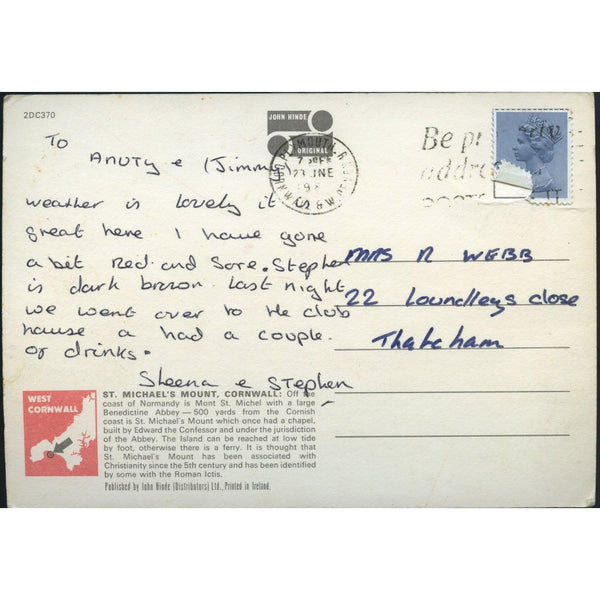 2DC370
JOHN HINDE
ORIGINAL
PLYMOUTH
7 PM
23 JUNE
19
Be
addre
To
Anuty e (Jimmy)
weather is lovely it
great here I have gone
a bit Red and Sore. Stephen
is dark brown. Last night
we went over to the club
hause a had a couple.
of drinks.
Sheena e Stephen
MRS R WEBB
22 Loundleys close
Thatcham
WEST
CORNWALL
ST. MICHAEL'S MOUNT, CORNWALL: Off the
coast of Normandy is Mont St. Michel with a large
Benedictine Abbey — 500 yards from the Cornish
coast is St. Michael's Mount which once had a chapel,
built by Edward the Confessor and under the jurisdiction
of the Abbey. The Island can be reached at low tide
by foot, otherwise there is a ferry. It is thought that
St. Michael's Mount has been associated with
Christianity since the 5th century and has been identified
by some with the Roman Ictis.
Published by John Hinde (Distributors) Ltd., Printed in Ireland.